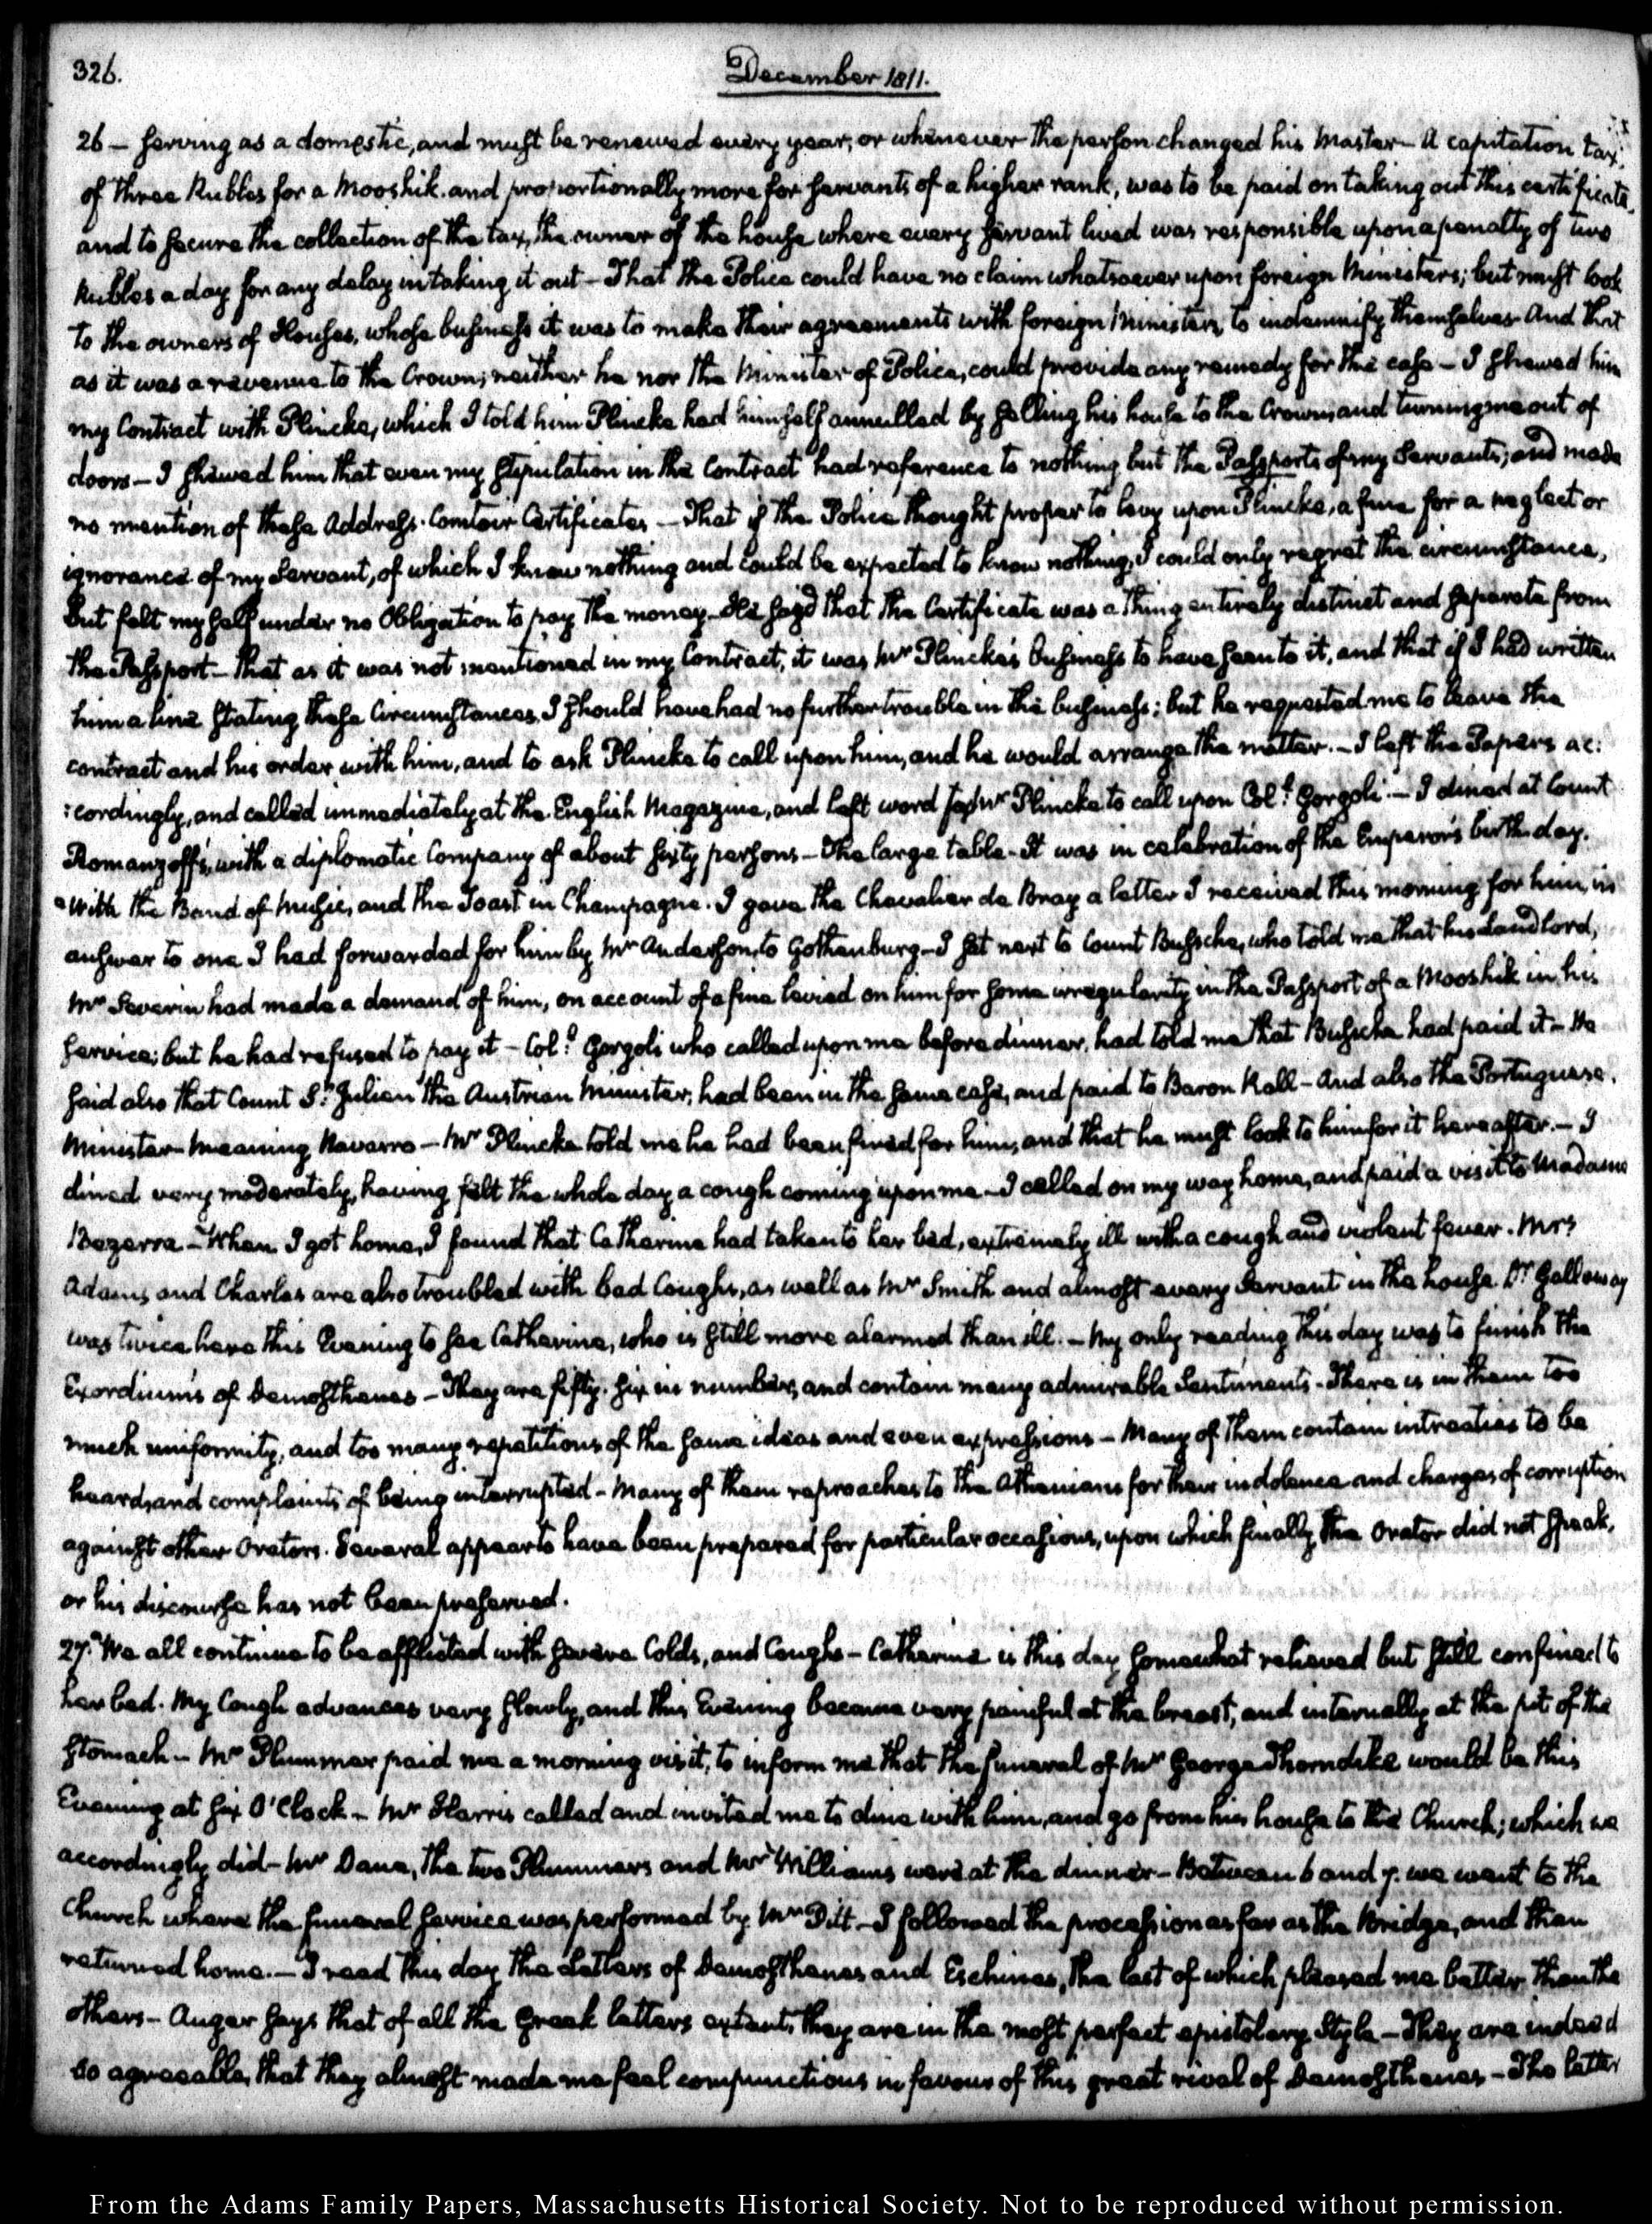 326.
December 1811.
26 – serving as a domestic, and must be renewed every year, or whenever the person changed his Master – A capitation tax,
of three Rubles for a Mooshik, and proportionally more for servants of a higher rank, was to be paid on taking out this certificate,
and to secure the collection of the tax, the owner of the house where every servant lived was responsible upon a penalty of two
Rubles a day for any delay in taking it out – That the Police could have no claim whatsoever upon foreign Ministers; but must look
to the owners of Houses, whose business it was to make their agreements with foreign Ministers, to indemnify themselves – And that
as it was a revenue to the Crown, neither he nor the Minister of Police, could provide any remedy for the case – I shewed him
my Contract with Plincke, which I told him Plincke had himself annulled by selling his house to the Crown, and turning me out of
doors – I shewed him that even my stipulation in the Contract had reference to nothing but the Passports of my Servants; and made
no mention of these Address-Comtoir Certificates – That if the Police thought proper to levy upon Plincke, a fine for a neglect or
ignorance of my Servant, of which I knew nothing and could be expected to know nothing, I could only regret the circumstance,
but felt myself under no Obligation to pay the money – He said that the Certificate was a thing entirely distinct and separate from
the Passport – That as it was not mentioned in my Contract, it was Mr. Plincke's business to have seen to it, and that if I had written
him a line stating these Circumstances, I should have had no further trouble in the business; but he requested me to leave the
contract and his order with him, and to ask Plincke to call upon him, and he would arrange the matter. – I left the Papers ac:
:cordingly, and called immediately at the English Magazine, and left word for Mr. Plincke to call upon Col.l Gorgoli. – I dined at Count
Romanzoff's, with a diplomatic Company of about sixty persons – The large table – It was in celebration of the Emperor's birth day.
With the Band of Music, and the Toast in Champagne. I gave the Chevalier de Bray a letter I received this morning for him, in
answer to one I had forwarded for him by Mr. Anderson, to Gothenburg – I sat next to Count Bussche, who told me that his Landlord,
Mr. Severin had made a demand of him, on account of a fine levied on him for some irregularity in the Passport of a Mooshik in his
service; but he had refused to pay it – Col.l Gorgoli who called upon me before dinner, had told me that Bussche had paid it – He
said also that Count St. Julien the Austrian Minister, had been in the same case, and paid to Baron Rall – And also the Portuguese
Minister – meaning Navarro – Mr. Plincke told me he had been fined for him, and that he must look to him for it hereafter. – I
dined very moderately, having felt the whole day a cough coming upon me – I called on my way home, and paid a visit to Madame
Bezerra – When I got home, I found that Catherine had taken to her bed, extremely ill with a cough and violent fever. Mrs.
Adams, and Charles are also troubled with bad Coughs, as well as Mr. Smith and almost every Servant in the house. Dr. Galloway
was twice here this Evening to see Catherine, who is still more alarmed than ill. – My only reading this day was to finish the
Exordiums of Demosthenes – They are fifty-six in number, and contain many admirable Sentiments – There is in them too
much uniformity, and too many repetitions of the same ideas and even expressions – Many of them contain intreaties to be
heard, and complaints of being interrupted – Many of them reproaches to the Athenians for their indolence and charges of corruption
against other Orators. Several appear to have been prepared for particular occasions, upon which finally the Orator did not speak,
or his discourse has not been preserved.
27. We all continue to be afflicted with severe Colds, and Coughs – Catherine is this day somewhat relieved but still confined to
her bed. My Cough advances very slowly, and this Evening became very painful at the breast, and internally at the pit of the
stomach – Mr. Plummer paid me a morning visit, to inform me that the funeral of Mr. George Thorndike would be this
Evening at six O'Clock – Mr. Harris called and invited me to dine with him, and go from his house to the Church; which we
accordingly did – Mr. Dana, the two Plummers and Mr. Williams were at the dinner – Between 6 and 7. we went to the
Church where the funeral service was performed by Mr. Pitt – I followed the procession as far as the Bridge, and then
returned home. – I read this day the Letters of Demosthenes and Eschines, the last of which pleased me better than the
others – Auger says that of all the Greek letters extant, they are in the most perfect epistolary Style – They are indeed
so agreeable, that they almost made me feel compunctions in favour of this great rival of Demosthenes – The latter
From the Adams Family Papers, Massachusetts Historical Society. Not to be reproduced without permission.